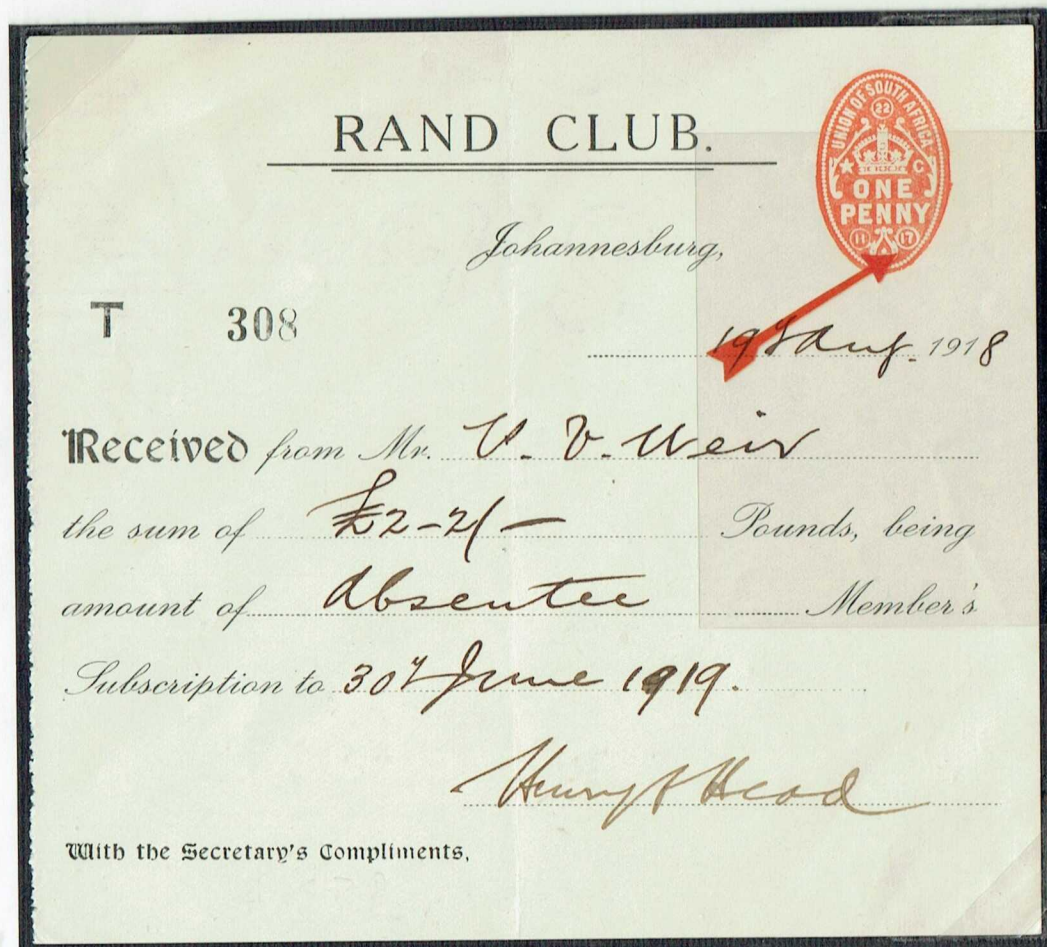 RAND CLUB.
UNION OF SOUTH AFRICA
22
G
ONE
PENNY
11 17
Johannesburg,
T 308
19th Aug. 1918
Received from Mr. V. V. Weir
the sum of £2-2/- Pounds, being
amount of Absentee Member's
Subscription to 30th June 1919.
Henry Head
With the Secretary's Compliments,